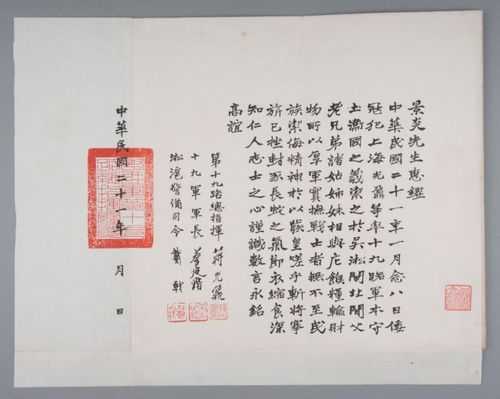 景炎先生惠鑑
中華民國二十一年一月念八日倭
寇犯上海光鼐等率十九路軍本守
土衞國之義禦之於吳淞閘北間父
老兄弟諸姑姊妹相與庀餱糧輸財
物所以軍實撫戰士者無不至民
族禦侮精神於以發皇嗟乎斬將搴
旂已挫封豕長蛇之氣節衣縮食深
知仁人志士之心謹識數言永銘
高誼
第十九路總指揮 蔣光鼐
十九軍軍長 蔡廷鍇
淞滬警備司令 戴戟
中華民國二十一年 月 日